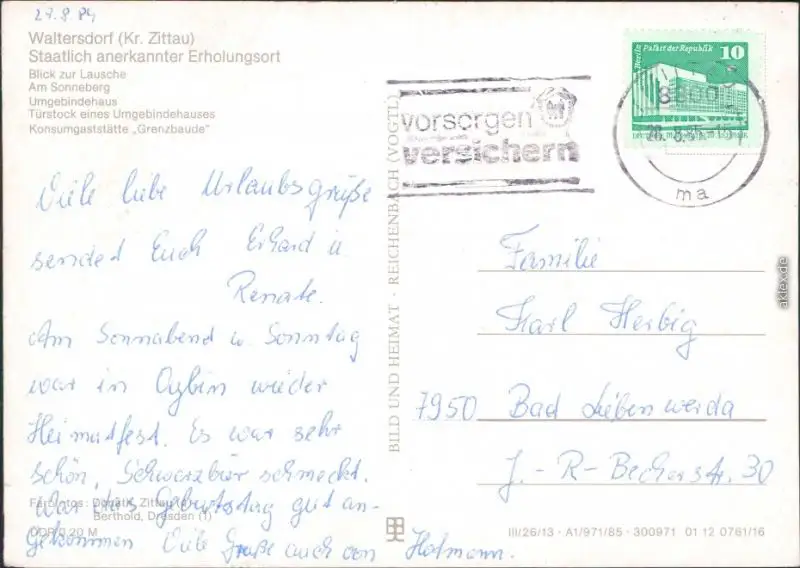 Waltersdorf (Kr. Zittau)
Staatlich anerkannter Erholungsort
Blick zur Lausche
Am Sonneberg
Umgebindehaus
Türstock eines Umgebindehauses
Konsumgaststätte „Grenzbaude"
Viele liebe Urlaubsgrüße
sendet Euch Erhard u
Renate.
Am Sonnabend u. Sonntag
war in Oybin wieder
Heimatfest. Es war sehr
schön, Schwarzbier schmeckt.
War das Geburtstag gut an-
gekommen Viele Grüße auch von Hofmann.
Farbfotos: Donath, Zittau
Berthold, Dresden (1)
DDR 0,20 M
BILD UND HEIMAT · REICHENBACH (VOGTL)
vorsorgen
versichern
Berlin, Palast der Republik 10
ma
Familie
Karl Herbig
7950 Bad Liebenwerda
J.-R-Becherstr. 30
III/26/13 · A1/971/85 · 300971 01 12 0761/16
aklex.de